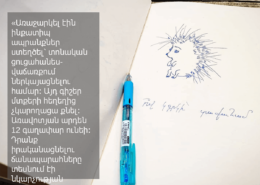 «Առաջարկել էին
ինքատիպ
ապրանքներ
ստեղծել՝ տոնական
ցուցահանես-
վաճառքում
ներկայացնելու
համար: Այդ գիշեր
մտքերի հեղեղից
չկարողացա քնել:
Առավոտյան արդեն
12 գաղափար ունեի:
Դրանք
իրականացնելու
ճանապարհները
տեսնում էի
նկարչության